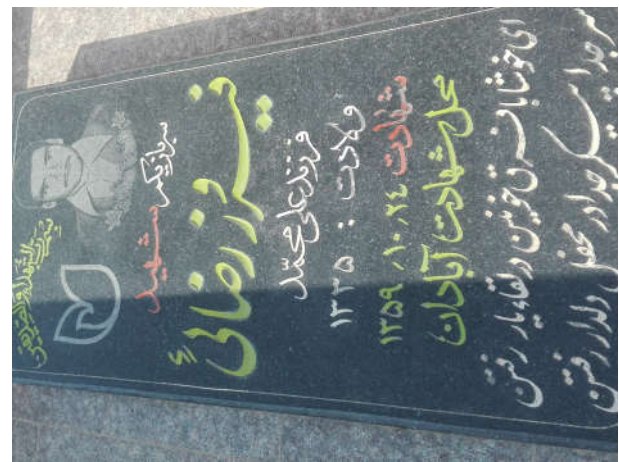 بسم رب الشهداء و الصدیقین
سرباز یکم شهید
فیروز رضائی
فرزند علی محمد
ولادت : ۱۳۳۵
شهادت ۱۳۵۹،۱۰،۲٤
محل شهادت آبادان
ای خوشا با فرق خونین در لقاء یار رفتن
سر جدا پیکر جدا در محفل دلدار رفتن